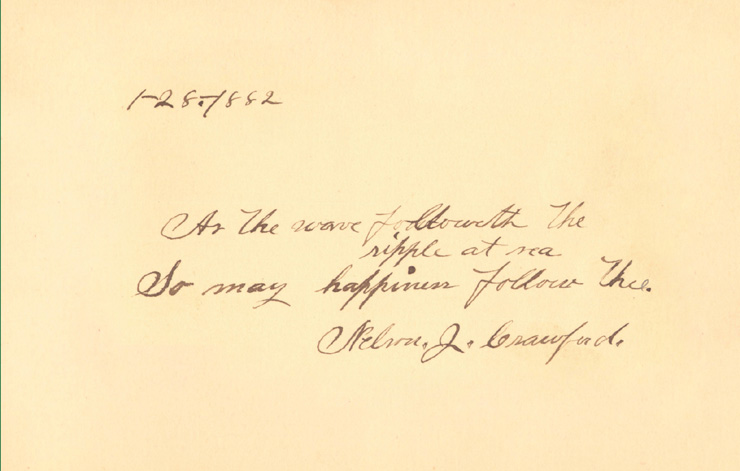 1-28-1882
As the wave followeth the
ripple at sea
So may happiness follow thee.
Nelson. J. Crawford.